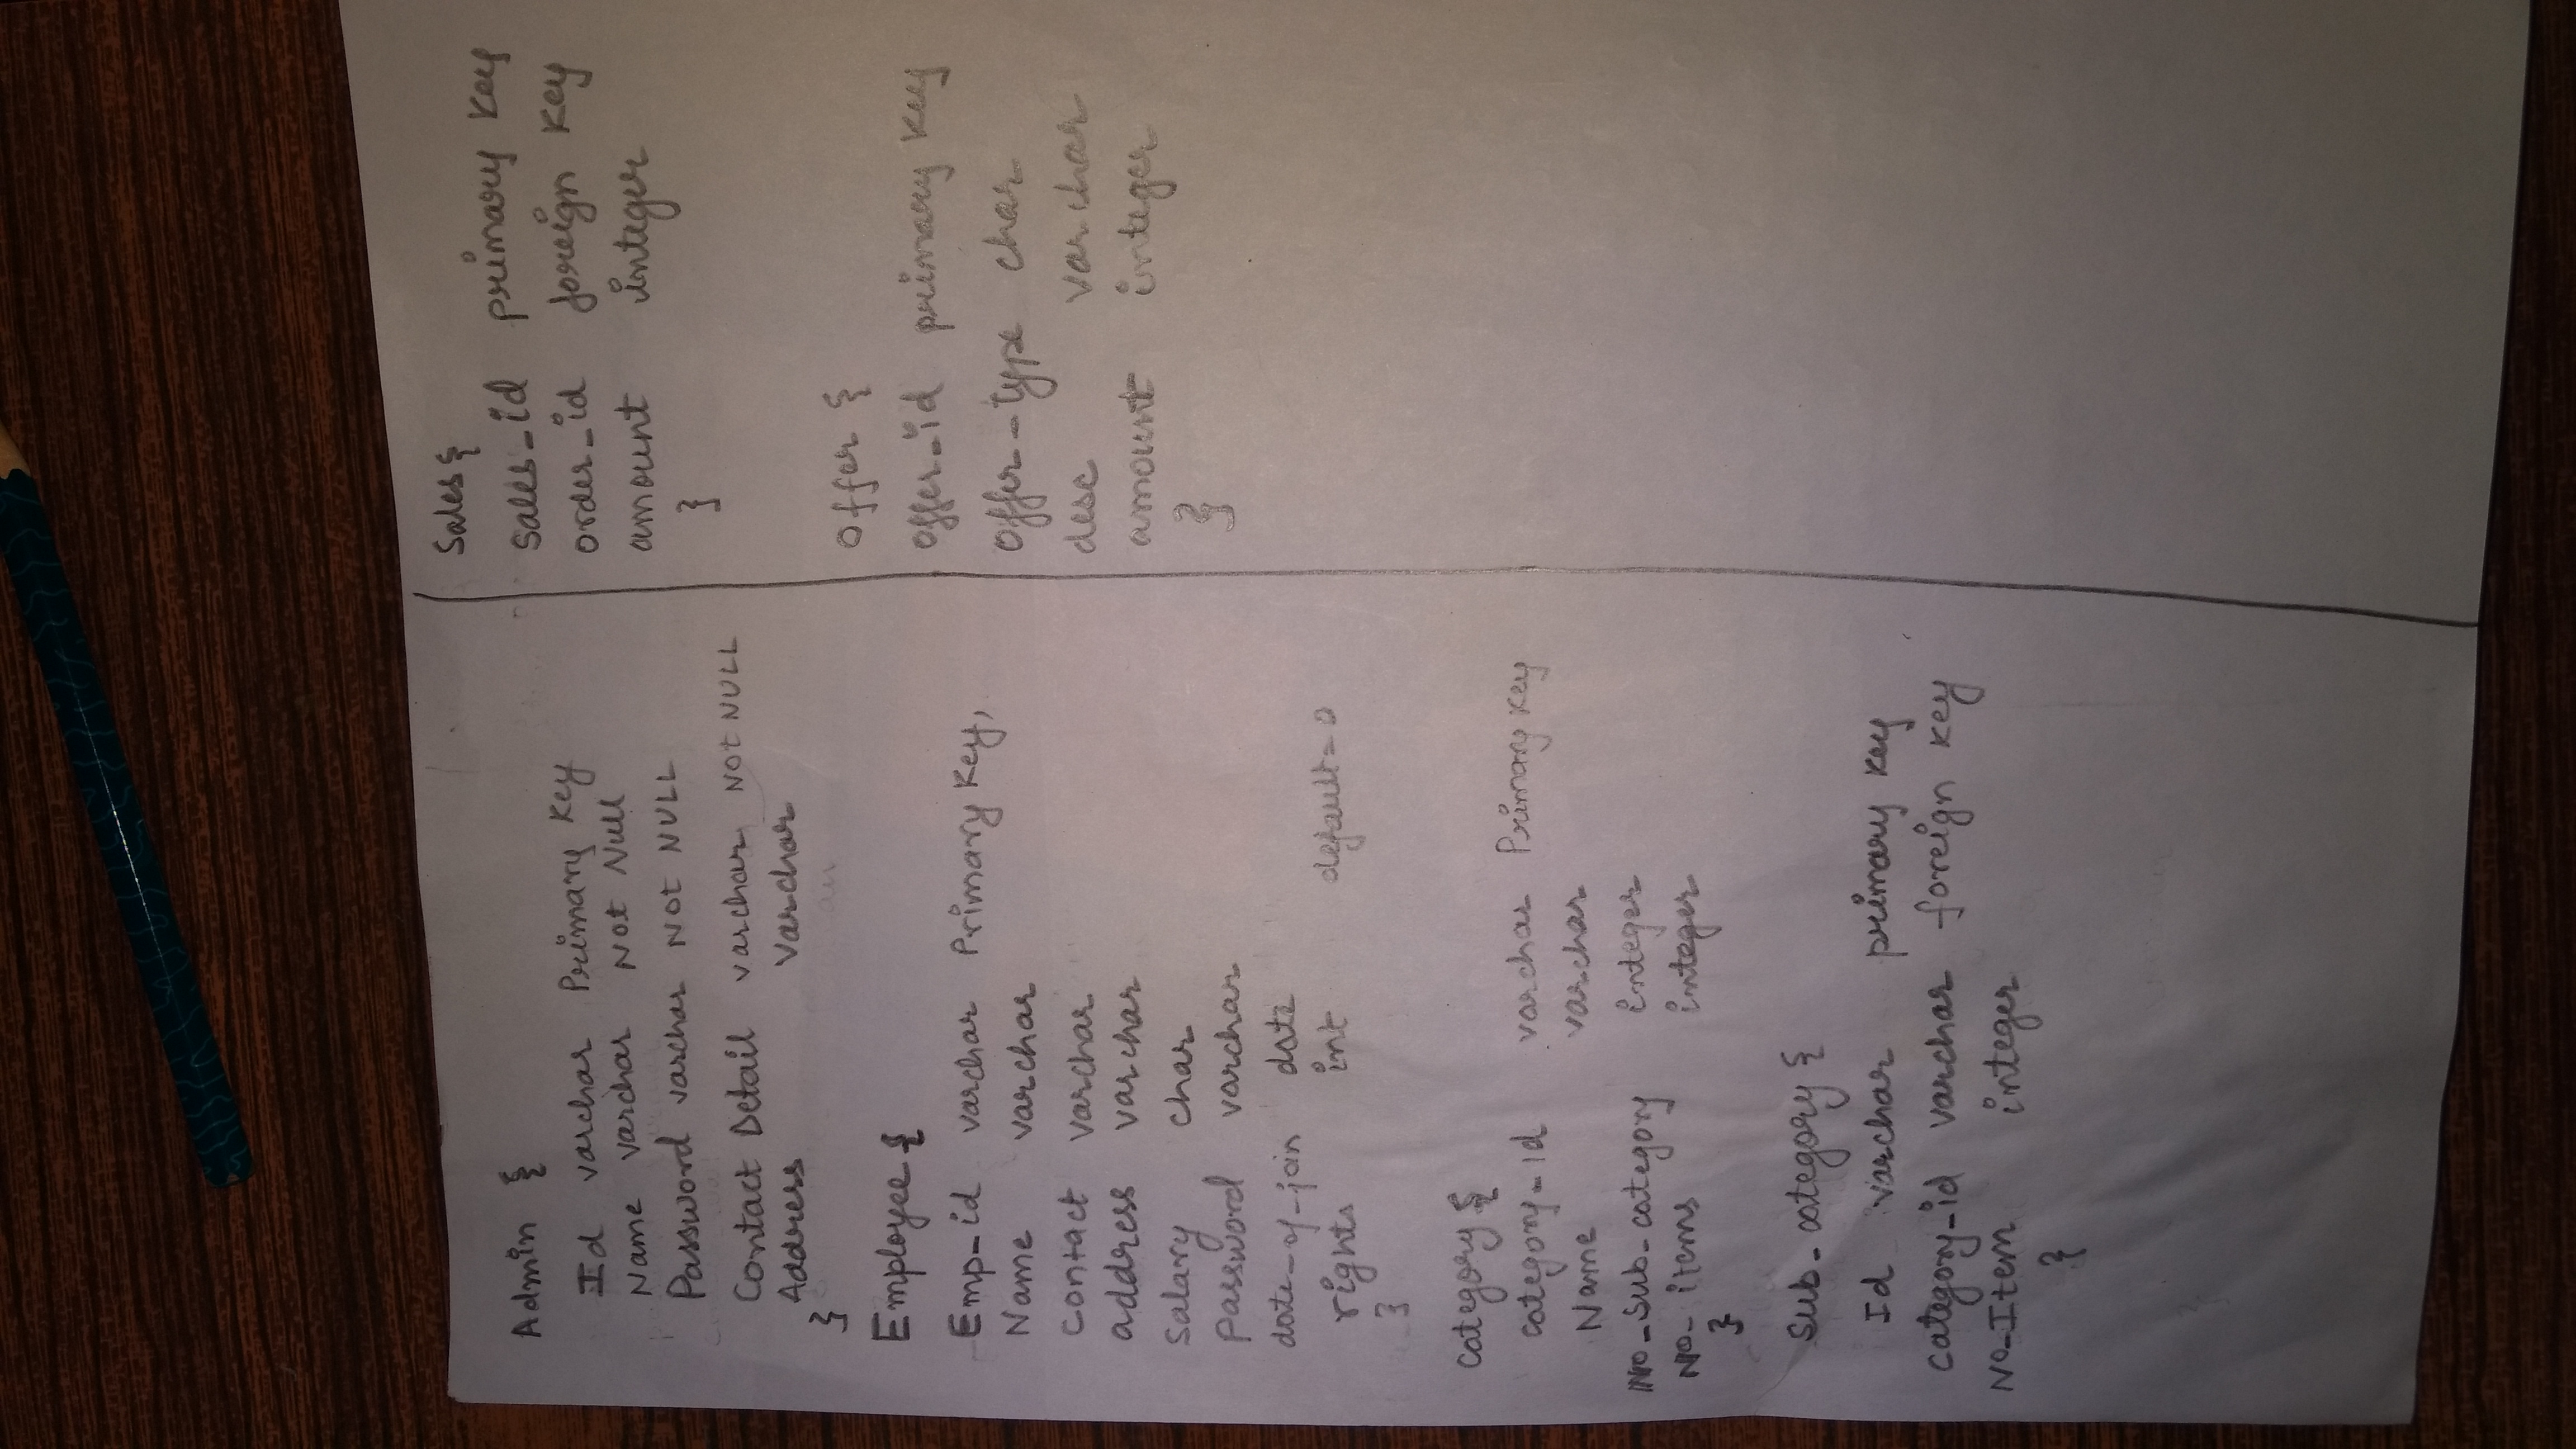 Admin {
Id varchar Primary Key
Name varchar Not Null
Password varchar NOT NULL
Contact Detail varchar NOT NULL
Address varchar
}
Employee {
Emp-id varchar Primary Key,
Name varchar
Contact varchar
address varchar
Salary char
Password varchar
date-of-join date
rights int default=0
}
Category {
category-id varchar Primary Key
Name varchar
No-Sub-category integer
No-items integer
}
Sub-category {
Id varchar primary key
category-id varchar foreign key
No-Item integer
}
Sales {
Sales-id primary key
order-id foreign key
amount integer
}
Offer {
offer-id primary key
offer-type char
desc varchar
amount integer
}